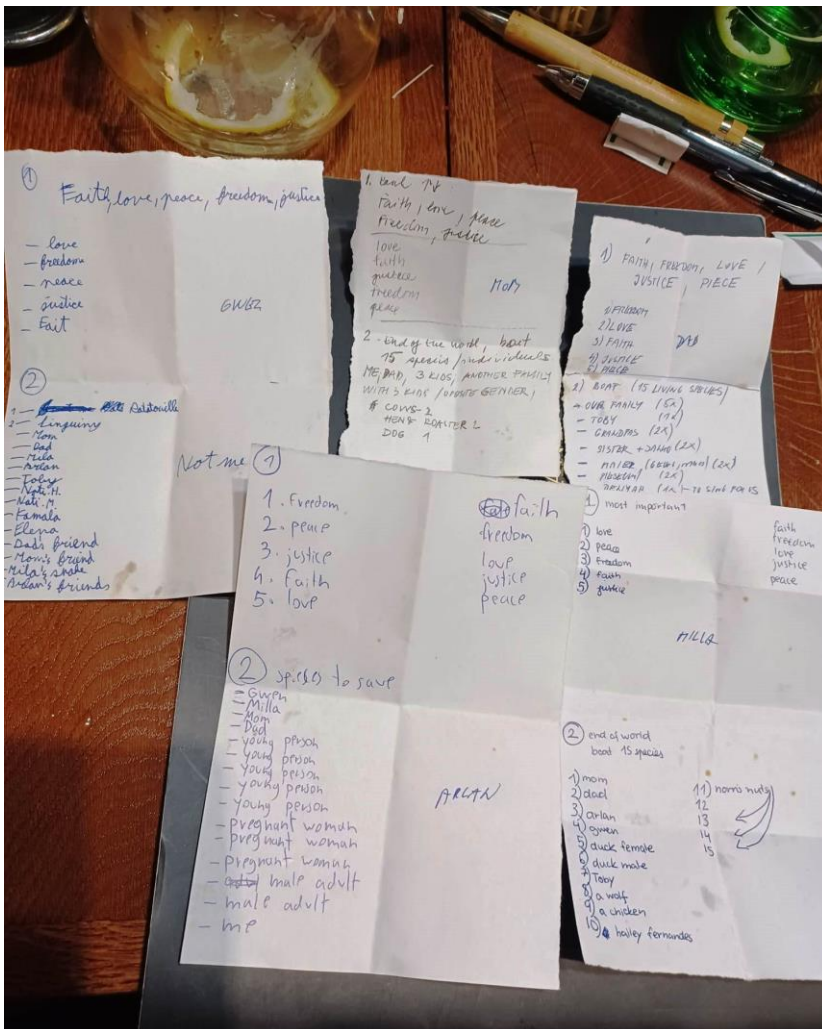 ①
Faith, love, peace, freedom, justice
- love
- freedom
- peace
- justice
- Fait
GWEN
②
1- Ratatouille
2- Linguiny
- Mom
- Dad
- Mila
- Arlan
- Toby
- Nati.H.
- Nati.M.
- Kamala
- Elena
- Dad's friend
- Mom's friend
- Mila's snake
- Arlan's friends
Not me
1.
Faith, love, peace
Freedom, justice
love
faith
justice
freedom
peace
MOM
2. End of the world, boat
15 species/individuels
ME, DAD, 3 KIDS, ANOTHER FAMILY
WITH 3 KIDS /OPOSTE GENDER/
COWS-2
HEN & ROASTER 2
DOG 1
1) FAITH, FREEDOM, LOVE,
JUSTICE, PIECE
1) FREEDOM
2) LOVE
3) FAITH
4) JUSTICE
5) PIECE
DAD
2) BOAT (15 LIVING SPECIES)
- OUR FAMILY (5x)
- TOBY (1x)
- GRANDPAS (2x)
- SISTER + (2x)
- (2x)
- (2x)
(1x) - TO SING FOR US
①
1. Freedom
2. peace
3. justice
4. Faith
5. love
faith
freedom
love
justice
peace
② species to save
- Gwen
- Milla
- Mom
- Dad
- young person
- young person
- young person
- young person
- young person
- pregnant woman
- pregnant woman
- pregnant woman
- male adult
- male adult
- me
ARLAN
① most important
1) love
2) peace
3) freedom
4) faith
5) justice
faith
freedom
love
justice
peace
MILLA
② end of world
boat 15 species
1) mom
2) dad
3) arlan
4) gwen
5) duck female
6) duck male
7) Toby
8) a wolf
9) a chicken
10) hailey fernandes
11)
12
13
14
15